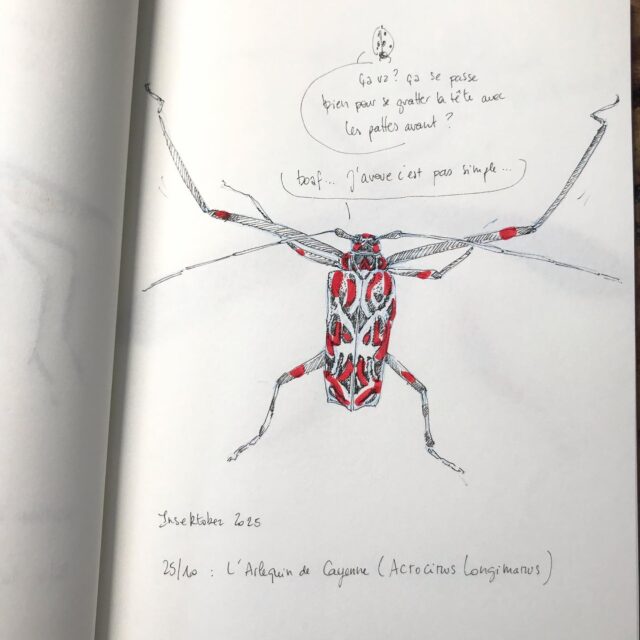 ça va ? ça se passe
bien pour se gratter la tête avec
les pattes avant ?
boaf... j'avoue c'est pas simple...
Insektober 2025
25/10 : L'Arlequin de Cayenne (Acrocinus Longimanus)